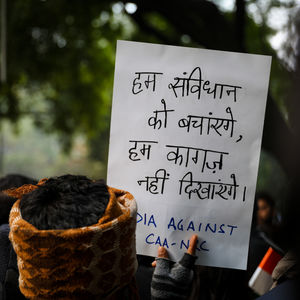 हम संविधान
को बचाएंगे,
हम कागज़
नहीं दिखाएंगे।
DIA AGAINST
CAA-NRC